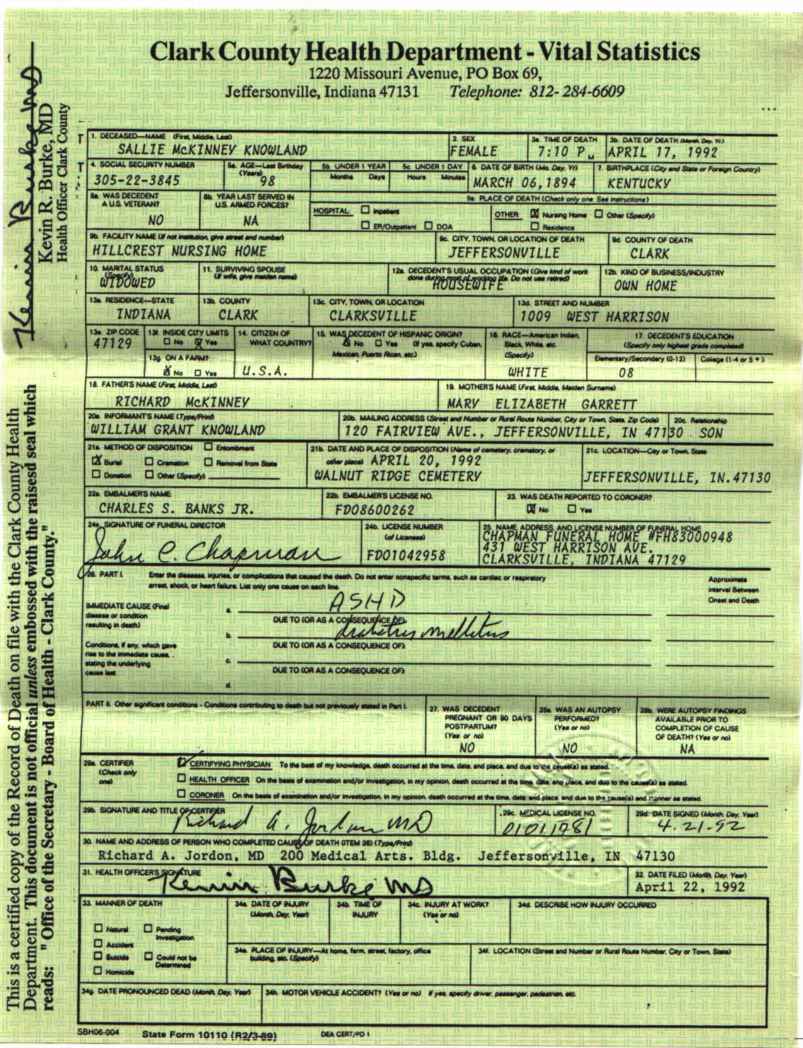 Clark County Health Department - Vital Statistics
1220 Missouri Avenue, PO Box 69,
Jeffersonville, Indiana 47131 Telephone: 812-284-6609
Kevin Burke MD
Kevin R. Burke, MD
Health Officer Clark County
This is a certified copy of the Record of Death on file with the Clark County Health
Department. This document is not official unless embossed with the raisesd seal which
reads: " Office of the Secretary - Board of Health - Clark County."
1. DECEASED—NAME (First, Middle, Last) 2. SEX 3a. TIME OF DEATH 3b. DATE OF DEATH (Month, Day, Yr.)
SALLIE McKINNEY KNOWLAND FEMALE 7:10 P M APRIL 17, 1992
4. SOCIAL SECURITY NUMBER 5a. AGE—Last Birthday (Years) 5b. UNDER 1 YEAR 5c. UNDER 1 DAY 6. DATE OF BIRTH (Mo. Day. Yr) 7. BIRTHPLACE (City and State or Foreign Country)
305-22-3845 98 Months Days Hours Minutes MARCH 06,1894 KENTUCKY
8a. WAS DECEDENT A U.S. VETERAN? 8b. YEAR LAST SERVED IN U.S. ARMED FORCES? 9a. PLACE OF DEATH (Check only one. See instructions)
NO NA HOSPITAL: Inpatient ER/Outpatient DOA OTHER: X Nursing Home Other (Specify) Residence
9b. FACILITY NAME (If not institution, give street and number) 9c. CITY, TOWN, OR LOCATION OF DEATH 9d. COUNTY OF DEATH
HILLCREST NURSING HOME JEFFERSONVILLE CLARK
10. MARITAL STATUS (Specify) 11. SURVIVING SPOUSE (If wife, give maiden name) 12a. DECEDENT'S USUAL OCCUPATION (Give kind of work done during most of working life. Do not use retired) 12b. KIND OF BUSINESS/INDUSTRY
WIDOWED HOUSEWIFE OWN HOME
13a. RESIDENCE—STATE 13b. COUNTY 13c. CITY, TOWN, OR LOCATION 13d. STREET AND NUMBER
INDIANA CLARK CLARKSVILLE 1009 WEST HARRISON
13e. ZIP CODE 13f. INSIDE CITY LIMITS 14. CITIZEN OF WHAT COUNTRY? 15. WAS DECEDENT OF HISPANIC ORIGIN? 16. RACE—American Indian, Black, White, etc. (Specify) 17. DECEDENT'S EDUCATION
47129 No X Yes X No Yes (If yes, specify Cuban, Mexican, Puerto Rican, etc.) (Specify only highest grade completed)
13g. ON A FARM? Elementary/Secondary (0-12) College (1-4 or 5 +)
X No Yes U.S.A. WHITE 08
18. FATHER'S NAME (First, Middle, Last) 19. MOTHER'S NAME (First, Middle, Maiden Surname)
RICHARD McKINNEY MARY ELIZABETH GARRETT
20a. INFORMANT'S NAME (Type/Print) 20b. MAILING ADDRESS (Street and Number or Rural Route Number, City or Town, State, Zip Code) 20c. Relationship
WILLIAM GRANT KNOWLAND 120 FAIRVIEW AVE., JEFFERSONVILLE, IN 47130 SON
21a. METHOD OF DISPOSITION Entombment 21b. DATE AND PLACE OF DISPOSITION (Name of cemetery, crematory, or other place) 21c. LOCATION—City or Town, State
X Burial Cremation Removal from State APRIL 20, 1992
Donation Other (Specify) WALNUT RIDGE CEMETERY JEFFERSONVILLE, IN.47130
22a. EMBALMER'S NAME 22b. EMBALMER'S LICENSE NO. 23. WAS DEATH REPORTED TO CORONER?
CHARLES S. BANKS JR. FD08600262 X No Yes
24a. SIGNATURE OF FUNERAL DIRECTOR 24b. LICENSE NUMBER (of Licensee) 25. NAME, ADDRESS, AND LICENSE NUMBER OF FUNERAL HOME
John C. Chapman FD01042958 CHAPMAN FUNERAL HOME #FH83000948
431 WEST HARRISON AVE.
CLARKSVILLE, INDIANA 47129
26. PART I. Enter the diseases, injuries, or complications that caused the death. Do not enter nonspecific terms, such as cardiac or respiratory
arrest, shock, or heart failure. List only one cause on each line.
Approximate Interval Between Onset and Death
IMMEDIATE CAUSE (Final disease or condition resulting in death)
a. ASHD
DUE TO (OR AS A CONSEQUENCE OF):
b. diabetes mellitus
Conditions, if any, which gave rise to the immediate cause, stating the underlying cause last
DUE TO (OR AS A CONSEQUENCE OF):
c.
DUE TO (OR AS A CONSEQUENCE OF):
d.
PART II. Other significant conditions - Conditions contributing to death but not previously stated in Part I.
27. WAS DECEDENT PREGNANT OR 90 DAYS POSTPARTUM? (Yes or no) NO
28a. WAS AN AUTOPSY PERFORMED? (Yes or no) NO
28b. WERE AUTOPSY FINDINGS AVAILABLE PRIOR TO COMPLETION OF CAUSE OF DEATH? (Yes or no) NA
29a. CERTIFIER (Check only one)
CERTIFYING PHYSICIAN To the best of my knowledge, death occurred at the time, date, and place, and due to the cause(s) as stated.
HEALTH OFFICER On the basis of examination and/or investigation, in my opinion, death occurred at the time, date, and place, and due to the cause(s) as stated.
CORONER On the basis of examination and/or investigation, in my opinion, death occurred at the time, date, and place, and due to the cause(s) and manner as stated.
29b. SIGNATURE AND TITLE OF CERTIFIER 29c. MEDICAL LICENSE NO. 29d. DATE SIGNED (Month, Day, Year)
Richard A. Jordan MD 01011981 4-21-92
30. NAME AND ADDRESS OF PERSON WHO COMPLETED CAUSE OF DEATH (ITEM 26) (Type/Print)
Richard A. Jordon, MD 200 Medical Arts. Bldg. Jeffersonville, IN 47130
31. HEALTH OFFICER'S SIGNATURE 32. DATE FILED (Month, Day, Year)
Kevin Burke MD April 22, 1992
33. MANNER OF DEATH 34a. DATE OF INJURY (Month, Day, Year) 34b. TIME OF INJURY 34c. INJURY AT WORK? (Yes or no) 34d. DESCRIBE HOW INJURY OCCURRED
Natural Pending Investigation
Accident
Suicide Could not be Determined
Homicide
34e. PLACE OF INJURY—At home, farm, street, factory, office building, etc. (Specify) 34f. LOCATION (Street and Number or Rural Route Number, City or Town, State)
34g. DATE PRONOUNCED DEAD (Month, Day, Year) 34h. MOTOR VEHICLE ACCIDENT? (Yes or no) If yes, specify driver, passenger, pedestrian, etc.
SBH06-004 State Form 10110 (R2/3-89) DEA CERT/PD 1